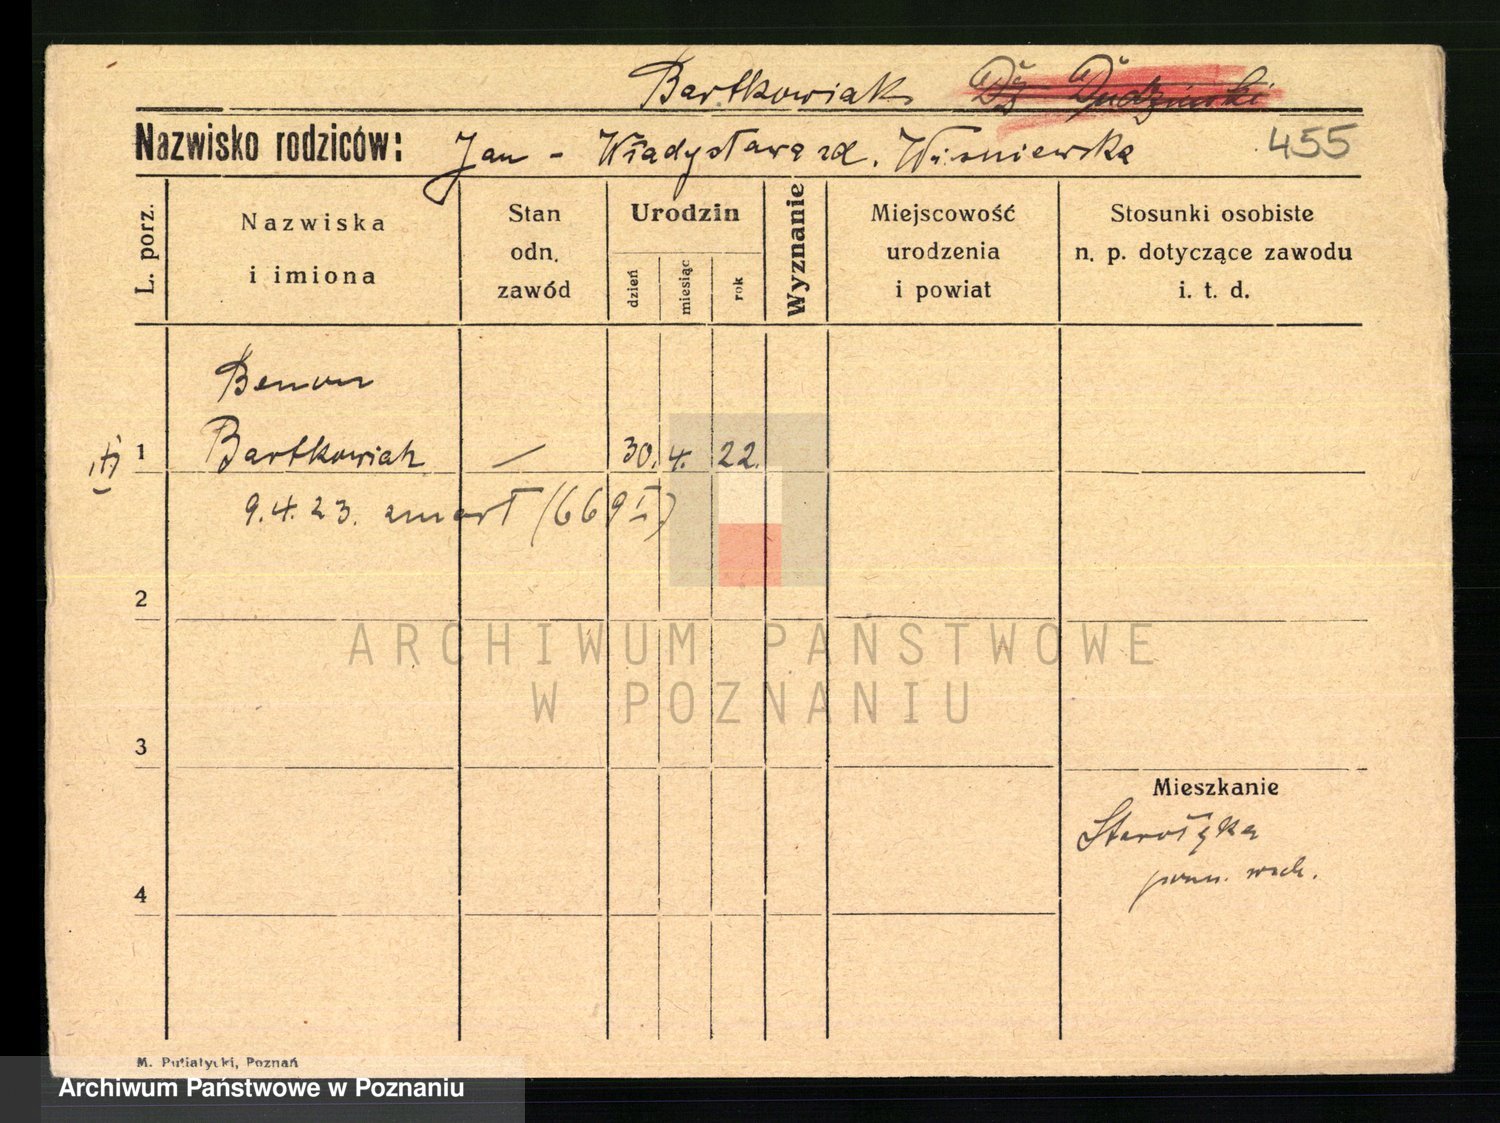 Bartkowiak Dż Dudziński
Nazwisko rodziców: Jan - Władysława zd. Wiśniewska 455
L. porz.
Nazwiska
i imiona
Stan
odn.
zawód
Urodzin
dzień
miesiąc
rok
Wyznanie
Miejscowość
urodzenia
i powiat
Stosunki osobiste
n. p. dotyczące zawodu
i. t. d.
Benon
1 Bartkowiak — 30. 4. 22.
9.4.23. zmarł (669 I)
2
ARCHIWUM PAŃSTWOWE
W POZNANIU
3
Mieszkanie
Starołęka
pozn. wsch.
4
M. Putiatycki, Poznań
Archiwum Państwowe w Poznaniu